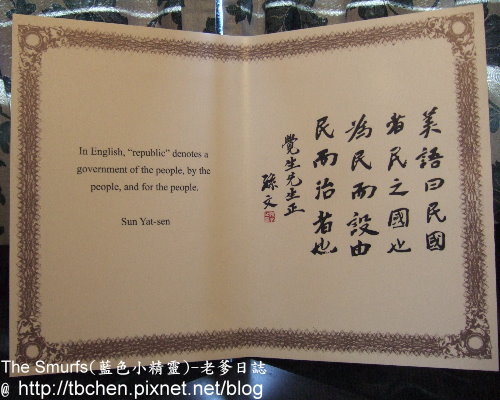 In English, “republic” denotes a
government of the people, by the
people, and for the people.
Sun Yat-sen
美語曰民國
者民之國也
為民而設由
民而治者也
覺生先生正
孫文
The Smurfs(藍色小精靈)-老爹日誌
@ http://tbchen.pixnet.net/blog